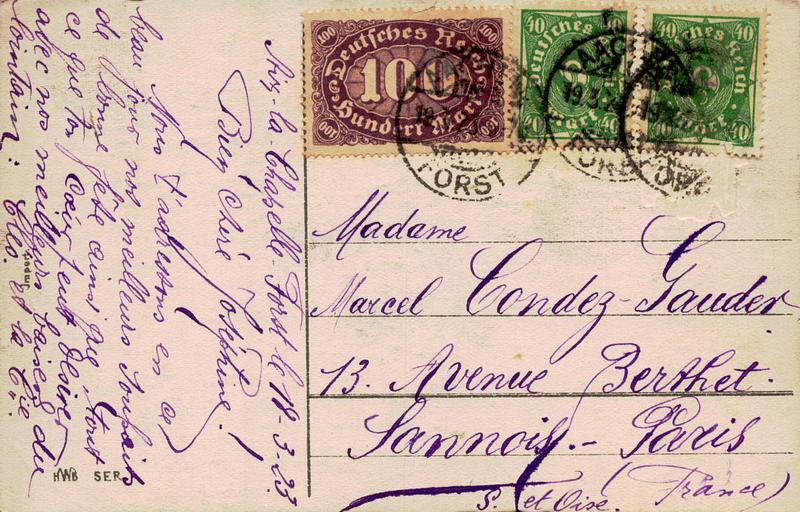 Aix-la-Chapelle-Forst le 18-3-23.
Bien chère Joséphine!
Nous t'adressons en ce
beau jour nos meilleurs souhaits
de bonne fête ainsi que tout
ce que ton cœur peut désirer
avec nos meilleurs baisers du
lointain:
et la Cie.
Import.
HWB SER.
100 100
Deutsches Reich
100
Hundert Mark
100 100
40 40
Deutsches Reich
Mark
40 40
40 40
Deutsches Reich
Mark
40 40
FORST
AACHEN
19.3.23
FORST
Madame
Marcel Condez-Gauder
13. Avenue Berthet.
Sannois.- Paris
S. et Oise. (France)